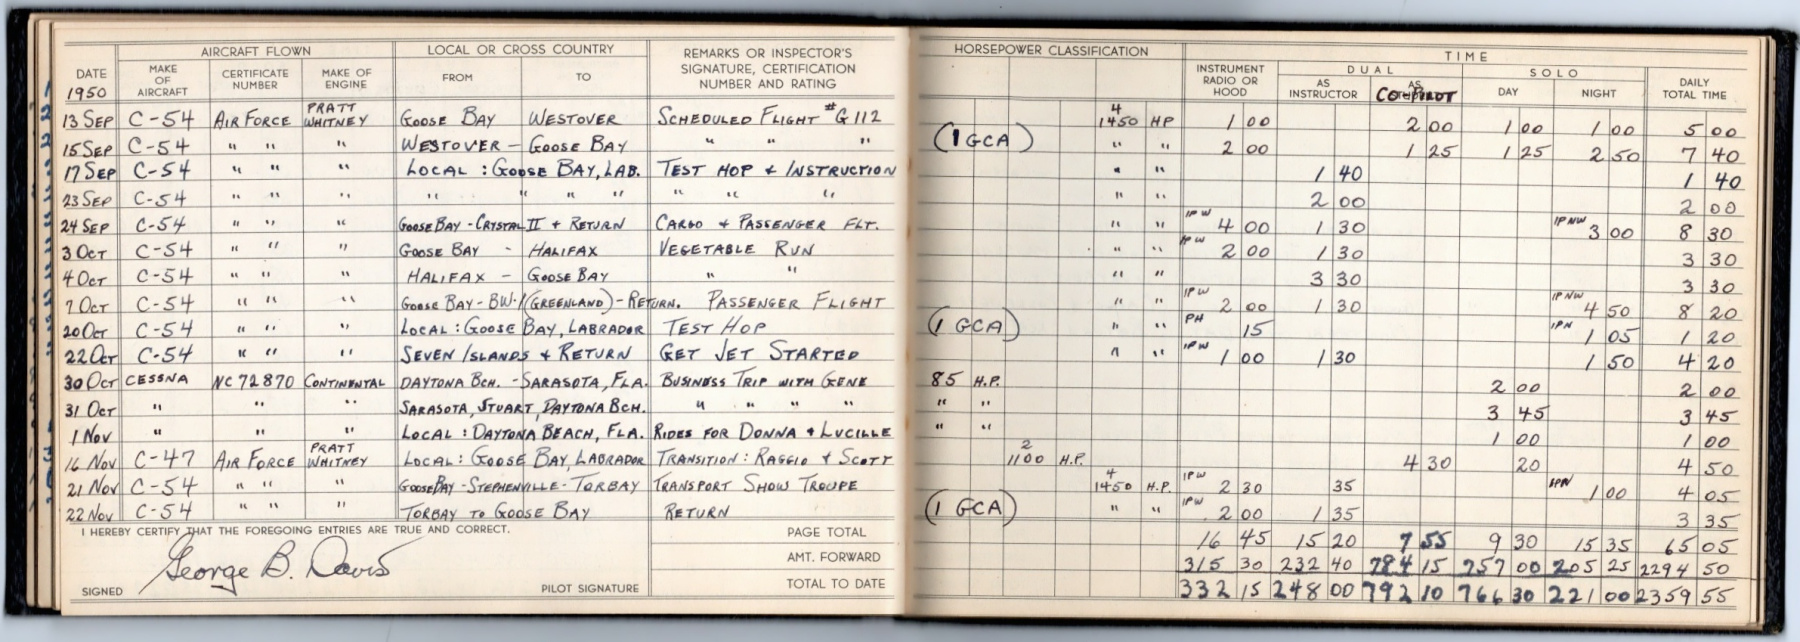 AIRCRAFT FLOWN LOCAL OR CROSS COUNTRY REMARKS OR INSPECTOR'S SIGNATURE, CERTIFICATION NUMBER AND RATING HORSEPOWER CLASSIFICATION TIME
DATE 1950 MAKE OF AIRCRAFT CERTIFICATE NUMBER MAKE OF ENGINE FROM TO INSTRUMENT RADIO OR HOOD DUAL AS INSTRUCTOR AS CO-PILOT SOLO DAY NIGHT DAILY TOTAL TIME
13 SEP C-54 AIR FORCE PRATT WHITNEY GOOSE BAY WESTOVER SCHEDULED FLIGHT #G112 4 1450 HP 1 00 2 00 1 00 1 00 5 00
15 SEP C-54 " " " WESTOVER - GOOSE BAY " " " (1 GCA) " " 2 00 1 25 1 25 2 50 7 40
17 SEP C-54 " " " LOCAL : GOOSE BAY, LAB. TEST HOP & INSTRUCTION " " 1 40 1 40
23 SEP C-54 " " " " " " " " " " " 2 00 2 00
24 SEP C-54 " " " GOOSE BAY - CRYSTAL II & RETURN CARGO & PASSENGER FLT. " " IPW 4 00 1 30 IPNW 3 00 8 30
3 OCT C-54 " " " GOOSE BAY - HALIFAX VEGETABLE RUN " " IPW 2 00 1 30 3 30
4 OCT C-54 " " " HALIFAX - GOOSE BAY " " " " 3 30 3 30
7 OCT C-54 " " " GOOSE BAY - BW-1 (GREENLAND) - RETURN. PASSENGER FLIGHT " " IPW 2 00 1 30 IPNW 4 50 8 20
20 OCT C-54 " " " LOCAL : GOOSE BAY, LABRADOR TEST HOP (1 GCA) " " PH 15 IPN 1 05 1 20
22 OCT C-54 " " " SEVEN ISLANDS & RETURN GET JET STARTED " " IPW 1 00 1 30 1 50 4 20
30 OCT CESSNA NC 72870 CONTINENTAL DAYTONA BCH. - SARASOTA, FLA. BUSINESS TRIP WITH GENE 85 H.P. 2 00 2 00
31 OCT " " " SARASOTA, STUART, DAYTONA BCH. " " " " " " 3 45 3 45
1 NOV " " " LOCAL : DAYTONA BEACH, FLA. RIDES FOR DONNA & LUCILLE " " 1 00 1 00
16 NOV C-47 AIR FORCE PRATT WHITNEY LOCAL : GOOSE BAY, LABRADOR TRANSITION : RAGGIO & SCOTT 2 1100 H.P. 4 30 20 4 50
21 NOV C-54 " " " GOOSE BAY - STEPHENVILLE - TORBAY TRANSPORT SHOW TROUPE 4 1450 H.P. IPW 2 30 35 IPN 1 00 4 05
22 NOV C-54 " " " TORBAY TO GOOSE BAY RETURN (1 GCA) " " IPW 2 00 1 35 3 35
I HEREBY CERTIFY THAT THE FOREGOING ENTRIES ARE TRUE AND CORRECT. PAGE TOTAL 16 45 15 20 7 55 9 30 15 35 65 05
George B. Davis AMT. FORWARD 315 30 232 40 784 15 757 00 205 25 2294 50
SIGNED PILOT SIGNATURE TOTAL TO DATE 332 15 248 00 792 10 766 30 221 00 2359 55